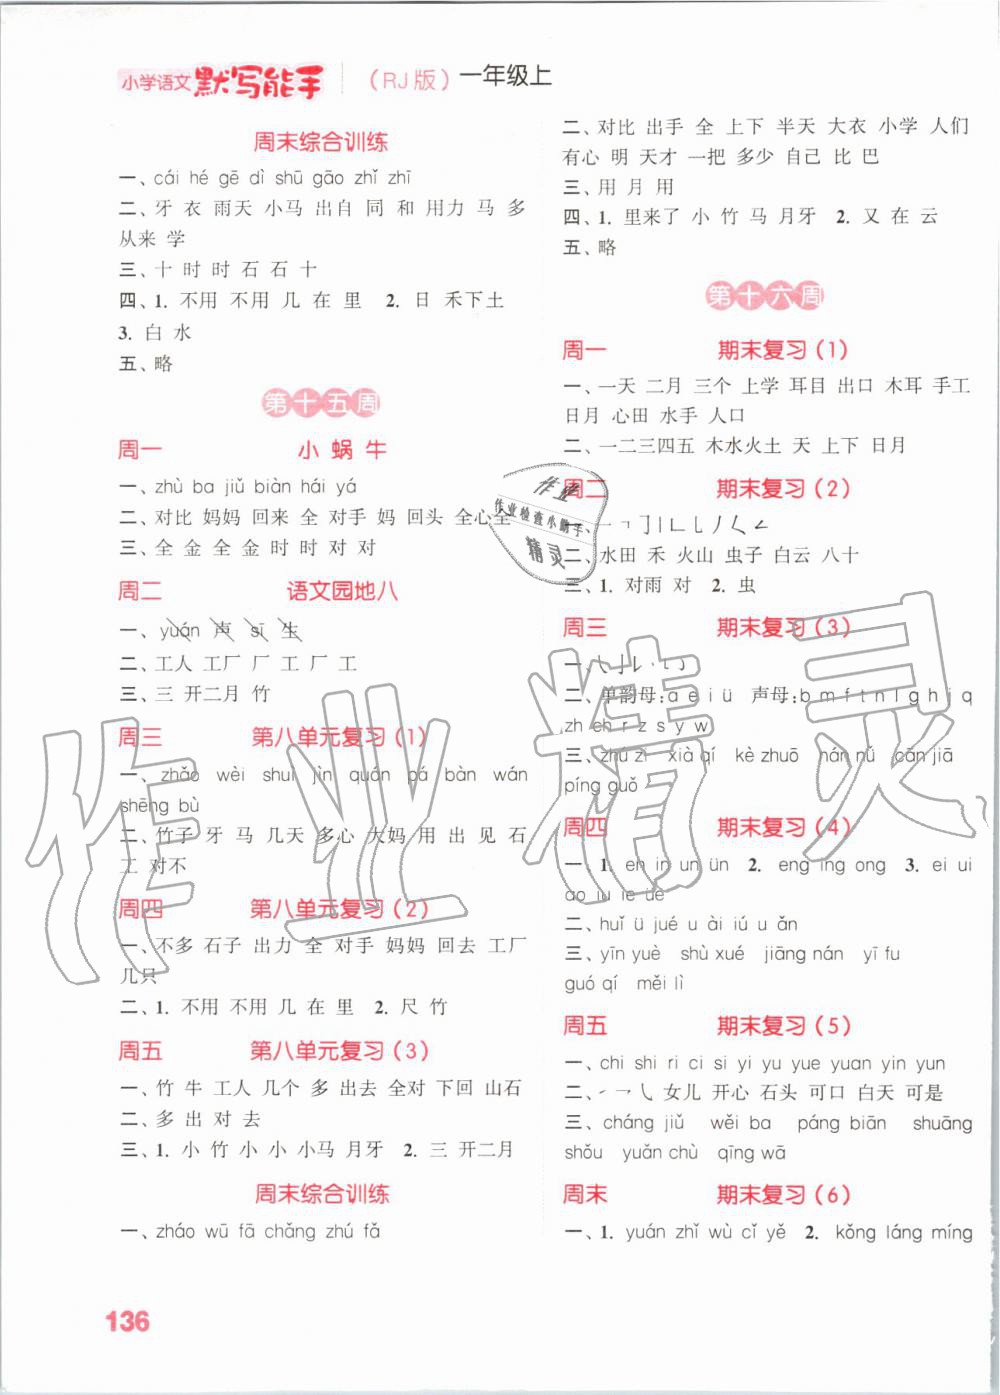 小学语文 默写能手 （RJ版） 一年级上
周末综合训练
一、cái hé gē dì shū gāo zhǐ zhī
二、牙 衣 雨天 小马 出自 同 和 用力 马 多
从来 学
三、十 时 时 石 石 十
四、1. 不用 不用 几 在 里 2. 日 禾下土
3. 白 水
五、略
第十五周
周一 小 蜗 牛
一、zhù ba jiǔ biàn hái yá
二、对比 妈妈 回来 全 对手 妈 回头 全心全
三、全 金 全 金 时 时 对 对
周二 语文园地八
一、yuán 声 sī 生
二、工人 工厂 厂 工 厂 工
三、三 开二月 竹
周三 第八单元复习（1）
一、zhǎo wèi shuì jìn quán pá bàn wán
shēng bù
二、竹子 牙 马 几天 多心 大妈 用 出 见 石
工 对不
周四 第八单元复习（2）
一、不多 石子 出力 全 对手 妈妈 回去 工厂
几只
二、1. 不用 不用 几 在 里 2. 尺 竹
周五 第八单元复习（3）
一、竹 牛 工人 几个 多 出去 全对 下回 山石
二、多 出 对 去
三、1. 小 竹 小 小 小马 月牙 2. 三 开二月
周末综合训练
一、zháo wū fā chǎng zhú fǎ
136
二、对比 出手 全 上下 半天 大衣 小学 人们
有心 明 天才 一把 多少 自己 比 巴
三、用 月 用
四、1. 里来了 小 竹 马 月牙 2. 又 在 云
五、略
第十六周
周一 期末复习（1）
一、一天 二月 三个 上学 耳目 出口 木耳 手工
日月 心田 水手 人口
二、一二三四五 木水火土 天 上下 日月
周二 期末复习（2）
二、水田 禾 火山 虫子 白云 八十
三、1. 对雨 对 2. 虫
周三 期末复习（3）
二、单韵母：ɑ e i ü 声母：b m f t n l g h j q
zh ch r z s y w
三、zhú zi xià qí kè zhuō nán nǚ cān jiā
píng guǒ
周四 期末复习（4）
一、1. en in un ün 2. eng ing ong 3. ei ui
ao iu ie üe
二、huǐ ü jué u ài iú u ǎn
三、yīn yuè shù xué jiāng nán yī fu
guó qí měi lì
周五 期末复习（5）
一、chi shi ri ci si yi yu yue yuan yin yun
女儿 开心 石头 可口 白天 可是
三、cháng jiǔ wěi ba páng biān shuāng
shǒu yuǎn chù qīng wā
周末 期末复习（6）
一、1. yuán zhǐ wù cǐ yě 2. kǒng láng míng
作业
作业检查小助手
精灵
作业精灵